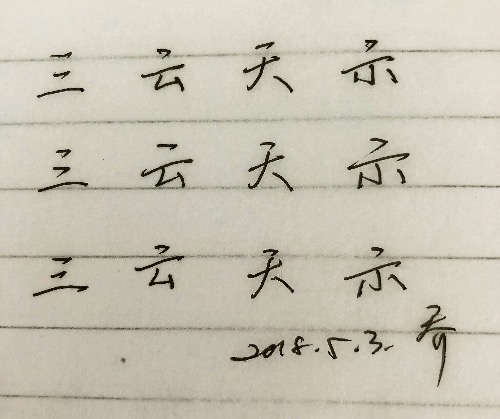 三 云 天 示
三 云 天 示
三 云 天 示
2018.5.3. 乔